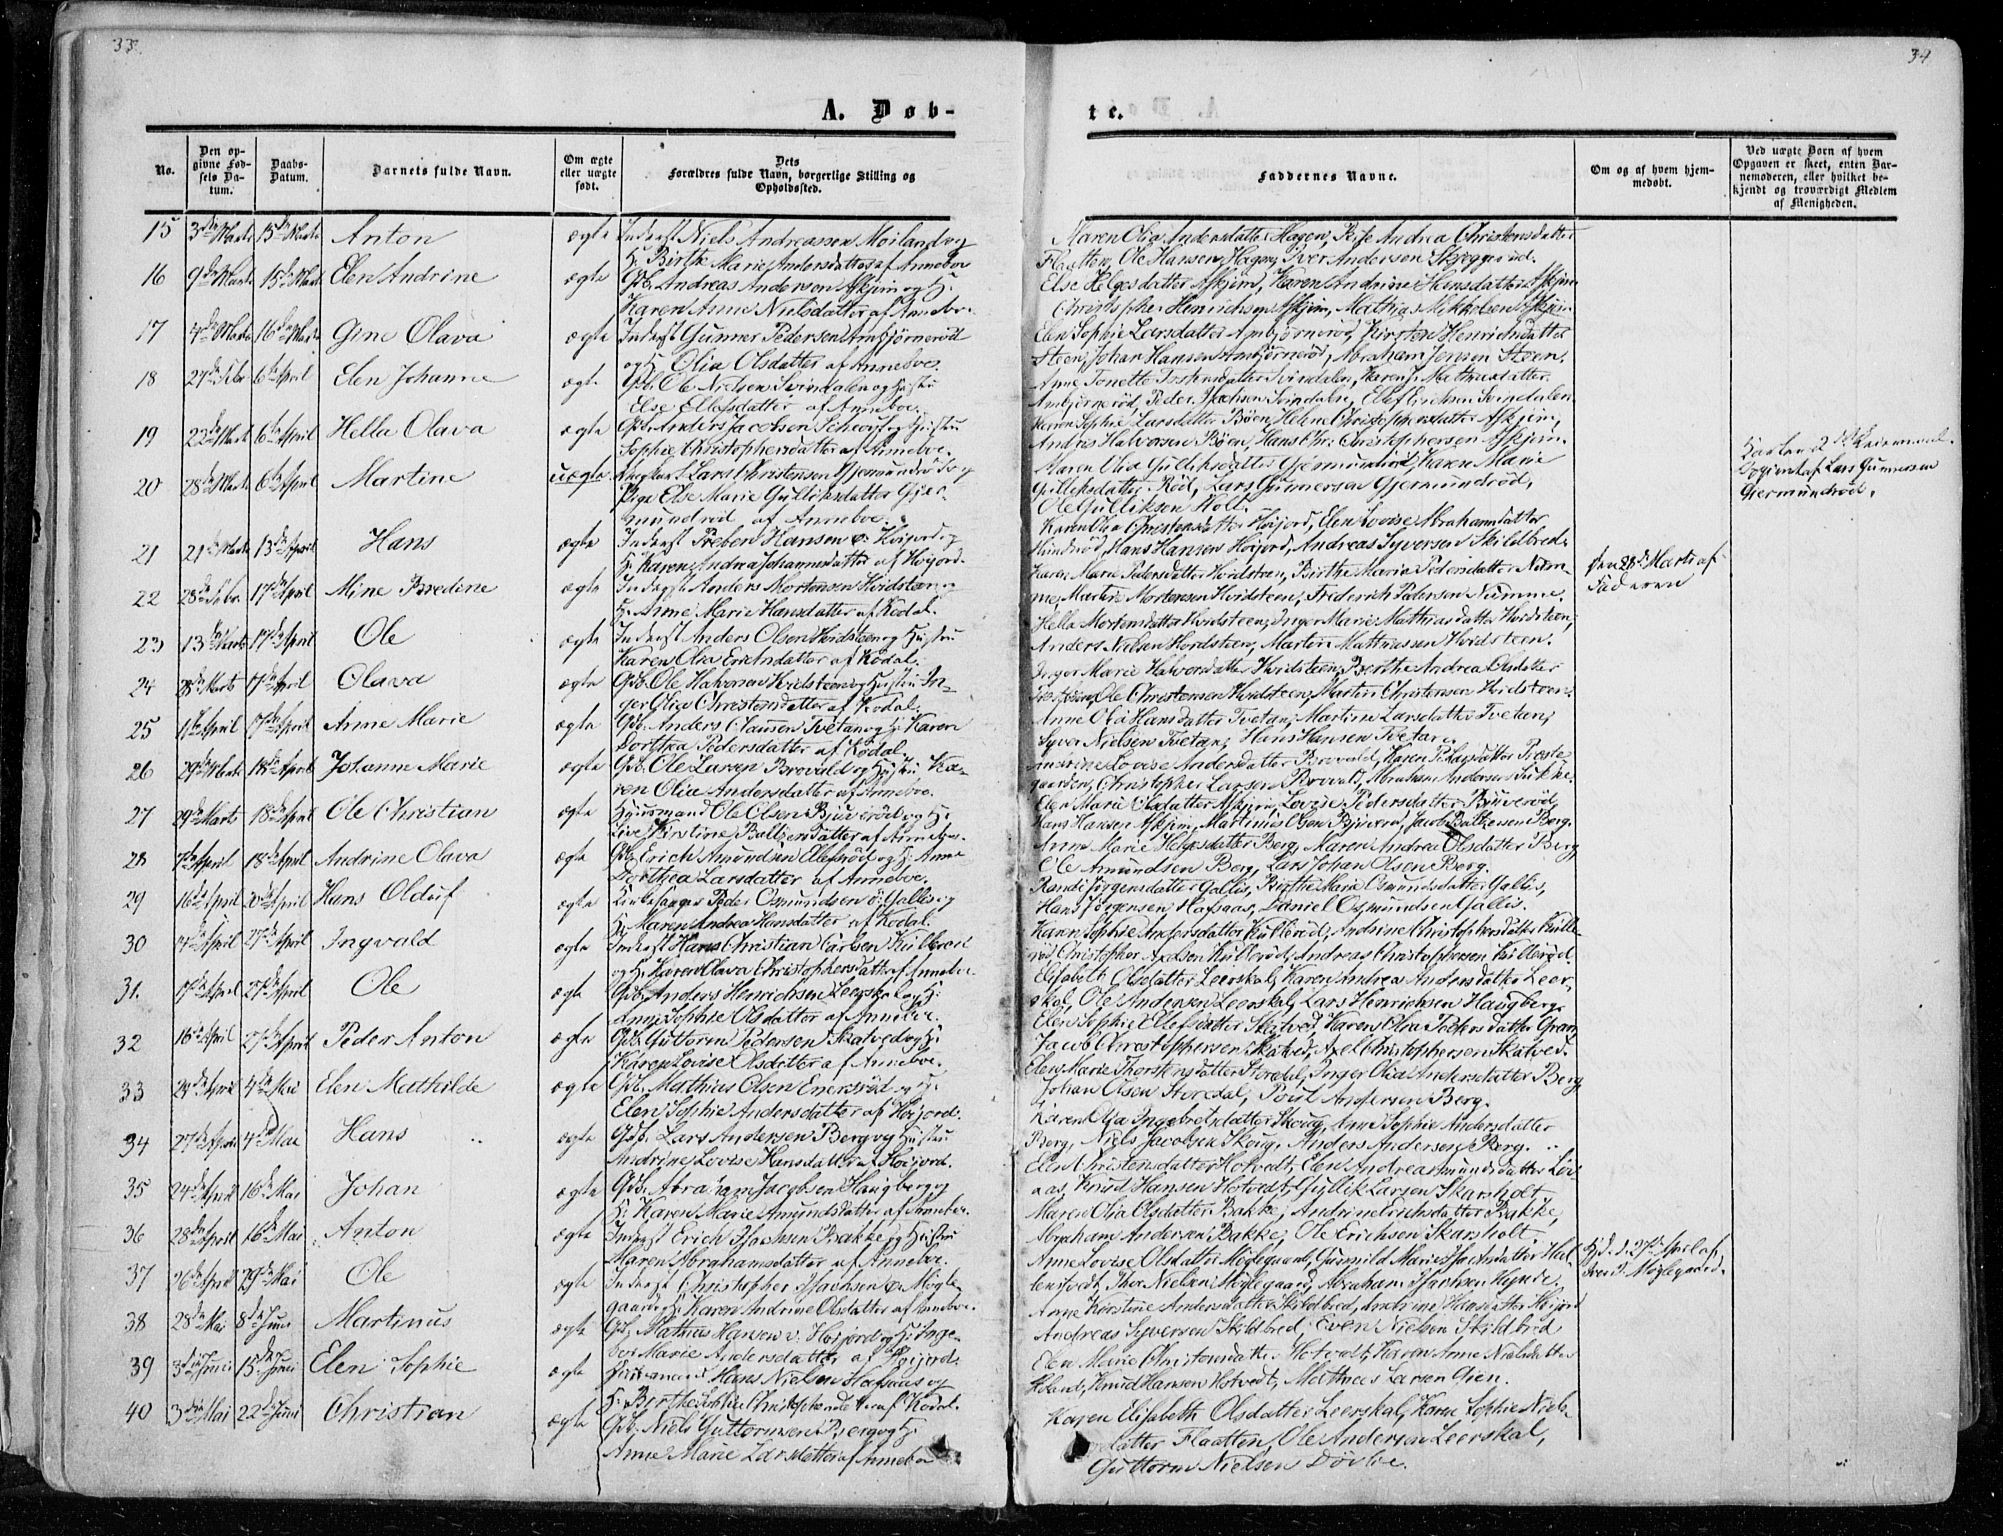 33.
34
A. Døb-
te.
No.
Den op-
givne Fød-
sels Da-
tum.
Daabs-
Datum.
Barnets fulde Navn.
Om ægte
eller uægte
født.
Dets
Forældres fulde Navn, borgerlige Stilling og
Opholdssted.
Faddernes Navne.
Om og af hvem hjem-
medøbt.
Ved uægte Børn af hvem
Opgaven er skeet, enten Bar-
nemoderen, eller hvilket be-
kjendt og troværdigt Medlem
af Menigheden.
15 3die Marts 15de Marts Anton ægte Inderst Niels Andreassen Moiland og
H. Birthe Marie Andersdatter af Anneboe
Maren Olia Andersdatter Hagen, Andrea Christensdatter
Flaatten, Ole Hansen Hagen, Iver Andersen Skjeggerud.
16 9de Marts 15de Marts Elen Andrine ægte Gdb. Andreas Andersen Askjem og H.
Karen Anne Nielsdatter af Anneboe
Else Helgesdatter Askjem, Karen Andrine Hansdatter Askjem
Christopher Henrichsen Askjem, Mathias Mikkelsen Askjem
17 4de Marts 16de Marts Gine Olava ægte Inderst Gunner Pedersen Ambjørnerød
og H. Olia Olsdatter af Anneboe.
Elen Sophie Larsdatter Ambjørnerød, Kirsten Henrichsdatter
Steen, Johan Hansen Ambjørnerød, Abraham Jensen Steen.
18 27de Febr. 6te April Elen Johanne ægte Gdb. Ole Nielsen Svindalen og Hustru
Else Ellefsdatter af Anneboe.
Anne Tonette Svindalen, Karen
Ambjørnerød, Peder Isachsen Svindalen, Svindalen
19 22de Marts 6te April Hella Olava ægte Gdb. Anders Jacobsen og Hustru
Sophie Christophersdatter af Anneboe.
Karen Sophie Larsdatter Bøen, Helene Christophersdatter Askjem,
Andreas Halvorsen Bøen, Hans Chr. Christophersen Askjem.
20 28de Marts 6te April Martine uægte Ungkarl Lars Christensen Gjermundrød og
Pige Else Marie Gulliksdatter Gjer-
mundrød af Anneboe.
Maren Olia Gulliksdatter Gjermundrød, Karen Marie
Gulliksdatter Rød, Lars Gunnersen Gjermundrød,
Ole Gulliksen Holt.
Opgivet af Lars Gunnersen
Gjermundrød.
21 21de Marts 13de April Hans ægte Inderst Preben Hansen v. Høijord og
H. Karen Andrea Johannesdatter af Høijord.
Karen Olia Christensdatter Høijord, Elen Lovise Abrahamsdatter
Hundrød, Hans Hansen Høijord, Andreas Syversen Skildbred.
Den 28de Marts af
Faderen
22 28de Febr. 17de April Mine Bredine ægte Inderst Anders Mortensen Hvidsteen og
H. Anne Marie Hansdatter af Kodal.
Karen Marie Pedersdatter Hvidsteen, Birthe Maria Pedersdatter Num-
me, Martin Mortensen Hvidsteen, Friderich Pedersen Numme.
23 13de Marts 17de April Ole ægte Inderst Anders Olsen Hvidsteen og Hustru
Karen Olia Ericksdatter af Kodal.
Hella Mortensdatter Hvidsteen, Inger Marie Mathiasdatter Hvidsteen,
Anders Nielsen Hvidsteen, Martin Mathiassen Hvidsteen.
24 28de Marts 17de April Olava ægte Gdb. Ole Halvorsen Hvidsteen og Hustru In-
ger Olia Christensdatter af Kodal.
Inger Marie Halvorsdatter Hvidsteen, Birthe Andrea Olsdatter
Ole Christensen Hvidsteen, Martin Christensen Hvidsteen.
25 1ste April 17de April Anne Marie ægte Gdb. Anders Clausen Tvetan og H. Karen
Dorthea Pedersdatter af Kodal.
Anne Olia Hansdatter Tvetan, Martine Larsdatter Tvetan,
Syver Nielsen Tvetan, Hans Hansen Tvetan.
26 29de Marts 18de April Johanne Marie ægte Gdb. Ole Larsen Brovald og Hustru Ka-
ren Olia Andersdatter af Anneboe.
Andrine Lovise Andersdatter Brovald, Karen Præste-
gaarden, Christopher Larsen Brovald, Abraham Andersen
27 29de Marts 18de April Ole Christian ægte Huusmand Ole Olsen Bjuerød og H.
Live Kirstine Baltzersdatter af Anneboe.
Elen Marie Olsdatter Askjem, Lovise Pedersdatter Bjuerød,
Hans Hansen Askjem, Martinus Olsen Bjuerød, Jacob Baltzersen Berg.
28 7de April 18de April Andrine Olava ægte Gdb. Erich Amundsen Ellefsrød og H. Anne
Dorthea Larsdatter af Anneboe.
Anne Marie Helgesdatter Berg, Maren Andrea Olsdatter Berg,
Ole Amundsen Berg, Lars Johan Olsen Berg.
29 16de April 20de April Hans Oluf ægte Kirkesanger Peder Osmundsen ø. Gallis og
H. Maren Andrea Hansdatter af Kodal.
Randi Jørgensdatter Gallis, Birthe Marie Osmundsdatter Gallis,
Hans Jørgensen Hafsaas, Daniel Osmundsen Gallis.
30 14de April 27de April Ingvald ægte Inderst Hans Christian Carlsen Kullerød
og H. Karen Olava Christophersdatter af Anneboe
Karen Sophie Andersdatter Kullerød, Andrine Christophersdatter Kulle-
rød, Christopher Axelsen Kullerød, Andreas Christophersen Kullerød.
31. 17de April 27de April Ole ægte Gdb. Anders Henrichsen Leerskal og H.
Anne Sophie Olsdatter af Anneboe.
Elisabeth Olsdatter Leerskal, Karen Andrea Andersdatter Leer-
skal, Ole Andersen Leerskal, Lars Henrichsen Haugberg.
32 16de April 27de April Peder Anton ægte Gdb. Guttorm Pedersen Skatved og H.
Karen Lovise Olsdatter af Anneboe.
Elen Sophie Ellefsdatter Skatved, Karen Olia Gran,
Jacob Christophersen Skatved, Axel Christophersen Skatved.
33 24de April 4de Mai Elen Mathilde ægte Gdb. Mathias Olsen Enersrød og H.
Elen Sophie Andersdatter af Høijord.
Elen Marie Thorstensdatter Storedal, Inger Olia Andersdatter Berg
Johan Olsen Storedal, Poul Andersen Berg.
34 27de April 4de Mai Hans ægte Gdb. Lars Andersen Berg og Hustru
Andrine Lovise Hansdatter af Høijord.
Karen Olia Ingebretsdatter Skoug, Anne Sophie Andersdatter
Berg, Niels Jacobsen Skoug, Anders Andersen Berg.
35 24de April 16de Mai Johan ægte Gdb. Abraham Jacobsen Haugberg og
H. Karen Marie Amundsdatter af Anneboe.
Elen Christensdatter Hotvedt, Elen Andrea
Knud Hansen Hotvedt, Gullik Larsen Skarsholt.
36 28de April 16de Mai Anton ægte Inderst Erich Isachsen Bakke og Hustru
Maren Abrahamsdatter af Anneboe.
Maren Olia Olsdatter Bakke, Andrine Erichsdatter Bakke,
Abraham Andersen Bakke, Ole Erichsen Skarsholt.
37 26de April 29de Mai Ole ægte Inderst Christopher Isachsen v. Møgle-
gaard og H. Karen Andrine Olsdatter af Anneboe.
Anne Lovise Olsdatter Møglegaard, Gunnild Marie Isachsdatter Hal-
lenstvedt, Thor Nielsen Møglegaard, Abraham Isachsen Hynde.
Hjd. d. 27de April af
Møglegaard.
38 28de Mai 8de Juni Martinus ægte Gdb. Mathias Hansen v. Høijord og H. Inge-
bor Marie Andersdatter af Høijord.
Anne Kirstine Andersdatter Skildbred, Andrine Hansdatter Høijord
Andreas Syversen Skildbred, Even Nielsen Skildbred
39 3die Juni 15de Juni Elen Sophie ægte Huusmand Hans Nielsen Hafsaas og
H. Berthe Sophie Christophersdatter af Kodal.
Elen Marie Christensdatter Hotvedt, Karen Anne Nielsdatter
Knud Hansen Hotvedt, Mathias Larsen Gien.
40 3die Mai 22de Juni Christian ægte Gdb. Niels Guttormsen Berg og H.
Anne Marie Larsdatter af Anneboe
Karen Elisabeth Olsdatter Leerskal, Karen Sophie Niels-
datter Flaatten, Ole Andersen Leerskal,
Guttorm Nielsen Døvlie.